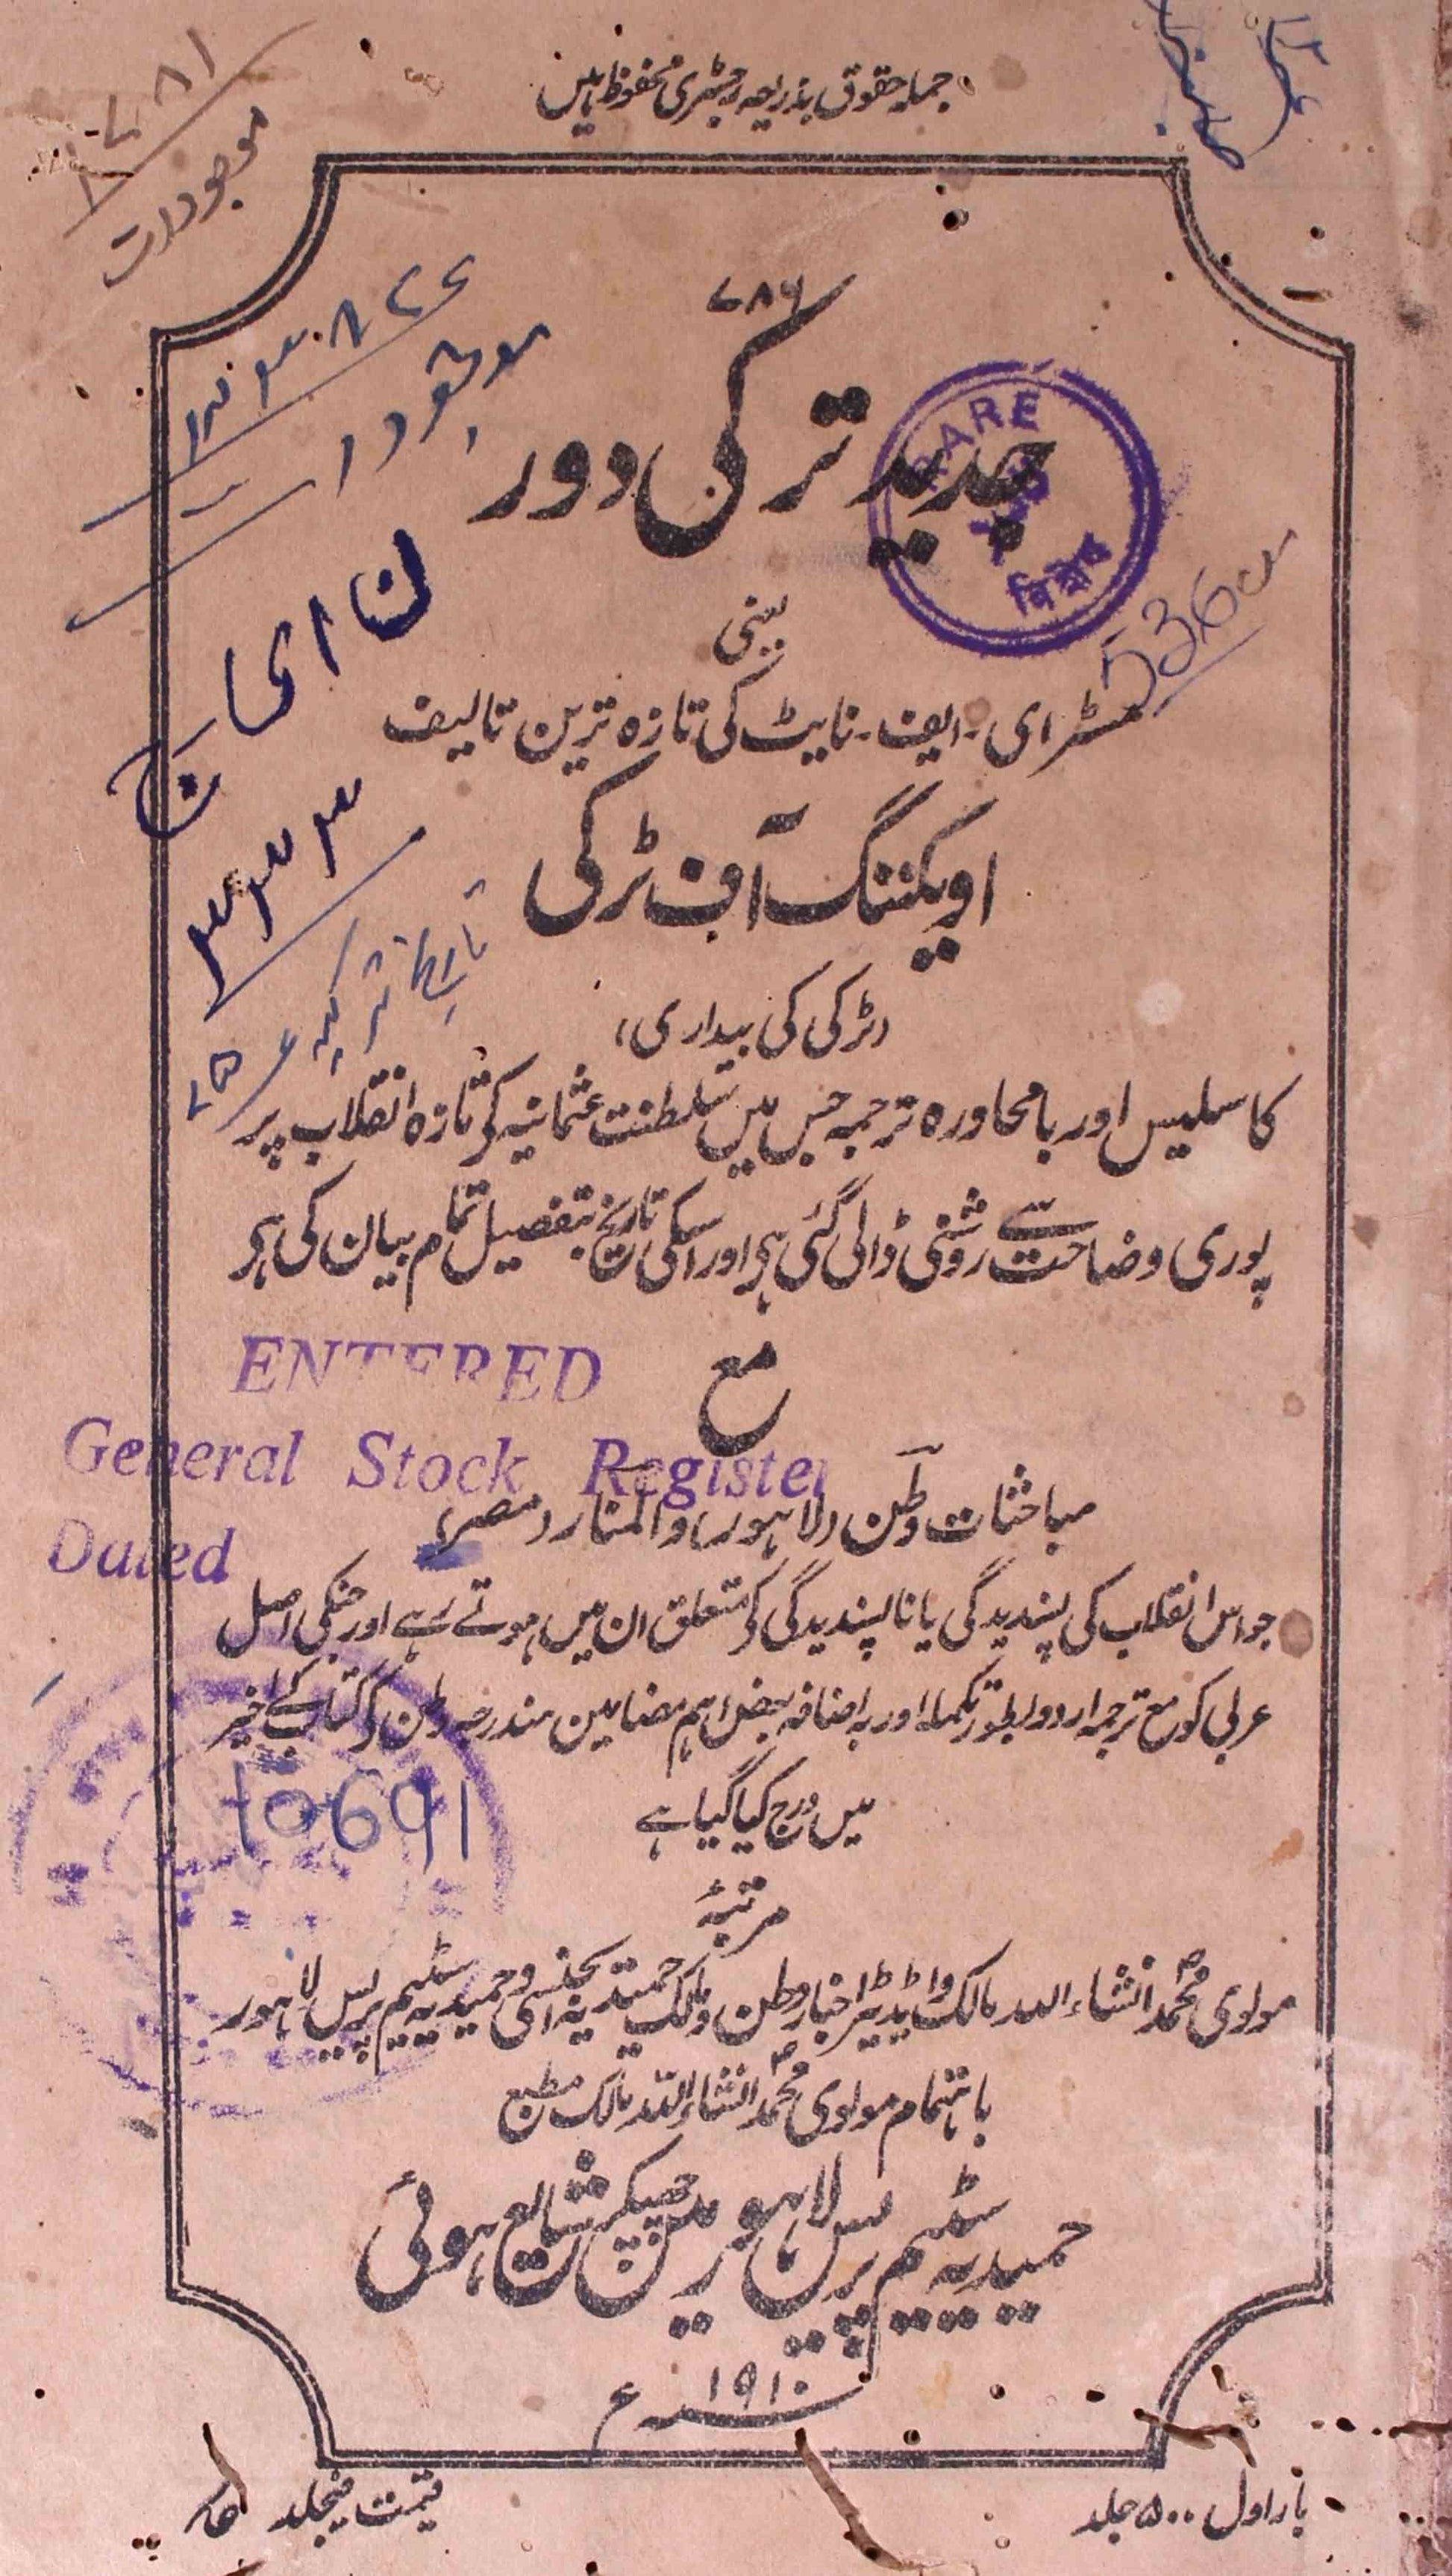 جملہ حقوق بذریعہ رجسٹری محفوظ ہیں
۷۸۶
جدید ترکی دور
یعنی
مسٹر ای۔ ایف۔ نایٹ کی تازہ ترین تالیف
اویکننگ آف ٹرکی
(ٹرکی کی بیداری)
کا سلیس اور بامحاورہ ترجمہ جس میں سلطنت عثمانیہ کے تازہ انقلاب پر
پوری وضاحت سے روشنی ڈالی گئی ہے اور اسکی تاریخ بتفصیل تمام بیان کی ہے
مع
مباحثات وطن (لاہور) و المنار (مصر)
جو اس انقلاب کی پسندیدگی یا ناپسندیدگی کے متعلق ان میں ہوتے رہے اور جنکی اصل
عربی کو مع ترجمہ اردو بطور تکملہ اور بہ اضافہ بعض اہم مضامین مندرجہ وطن کے کتاب کے اخیر
میں درج کیا گیا ہے
مرتبہٴ
مولوی محمد انشاء اللہ مالک و ایڈیٹر اخبار وطن و مالک حمیدیہ ایجنسی و حمیدیہ سٹیم پریس لاہور
باہتمام مولوی محمد انشاء اللہ مالک مطبع
حمیدیہ سٹیم پریس لاہور میں چھپکر شایع ہوئی
۱۹۱۰ء
بار اول ۵۰۰ جلد
قیمت فیجلد
RARE
ENTERED
General Stock Register
Dated
10691
536
موجودات
موجودات
ن ای ج
۳۳۳
تاریخ ترکیہ